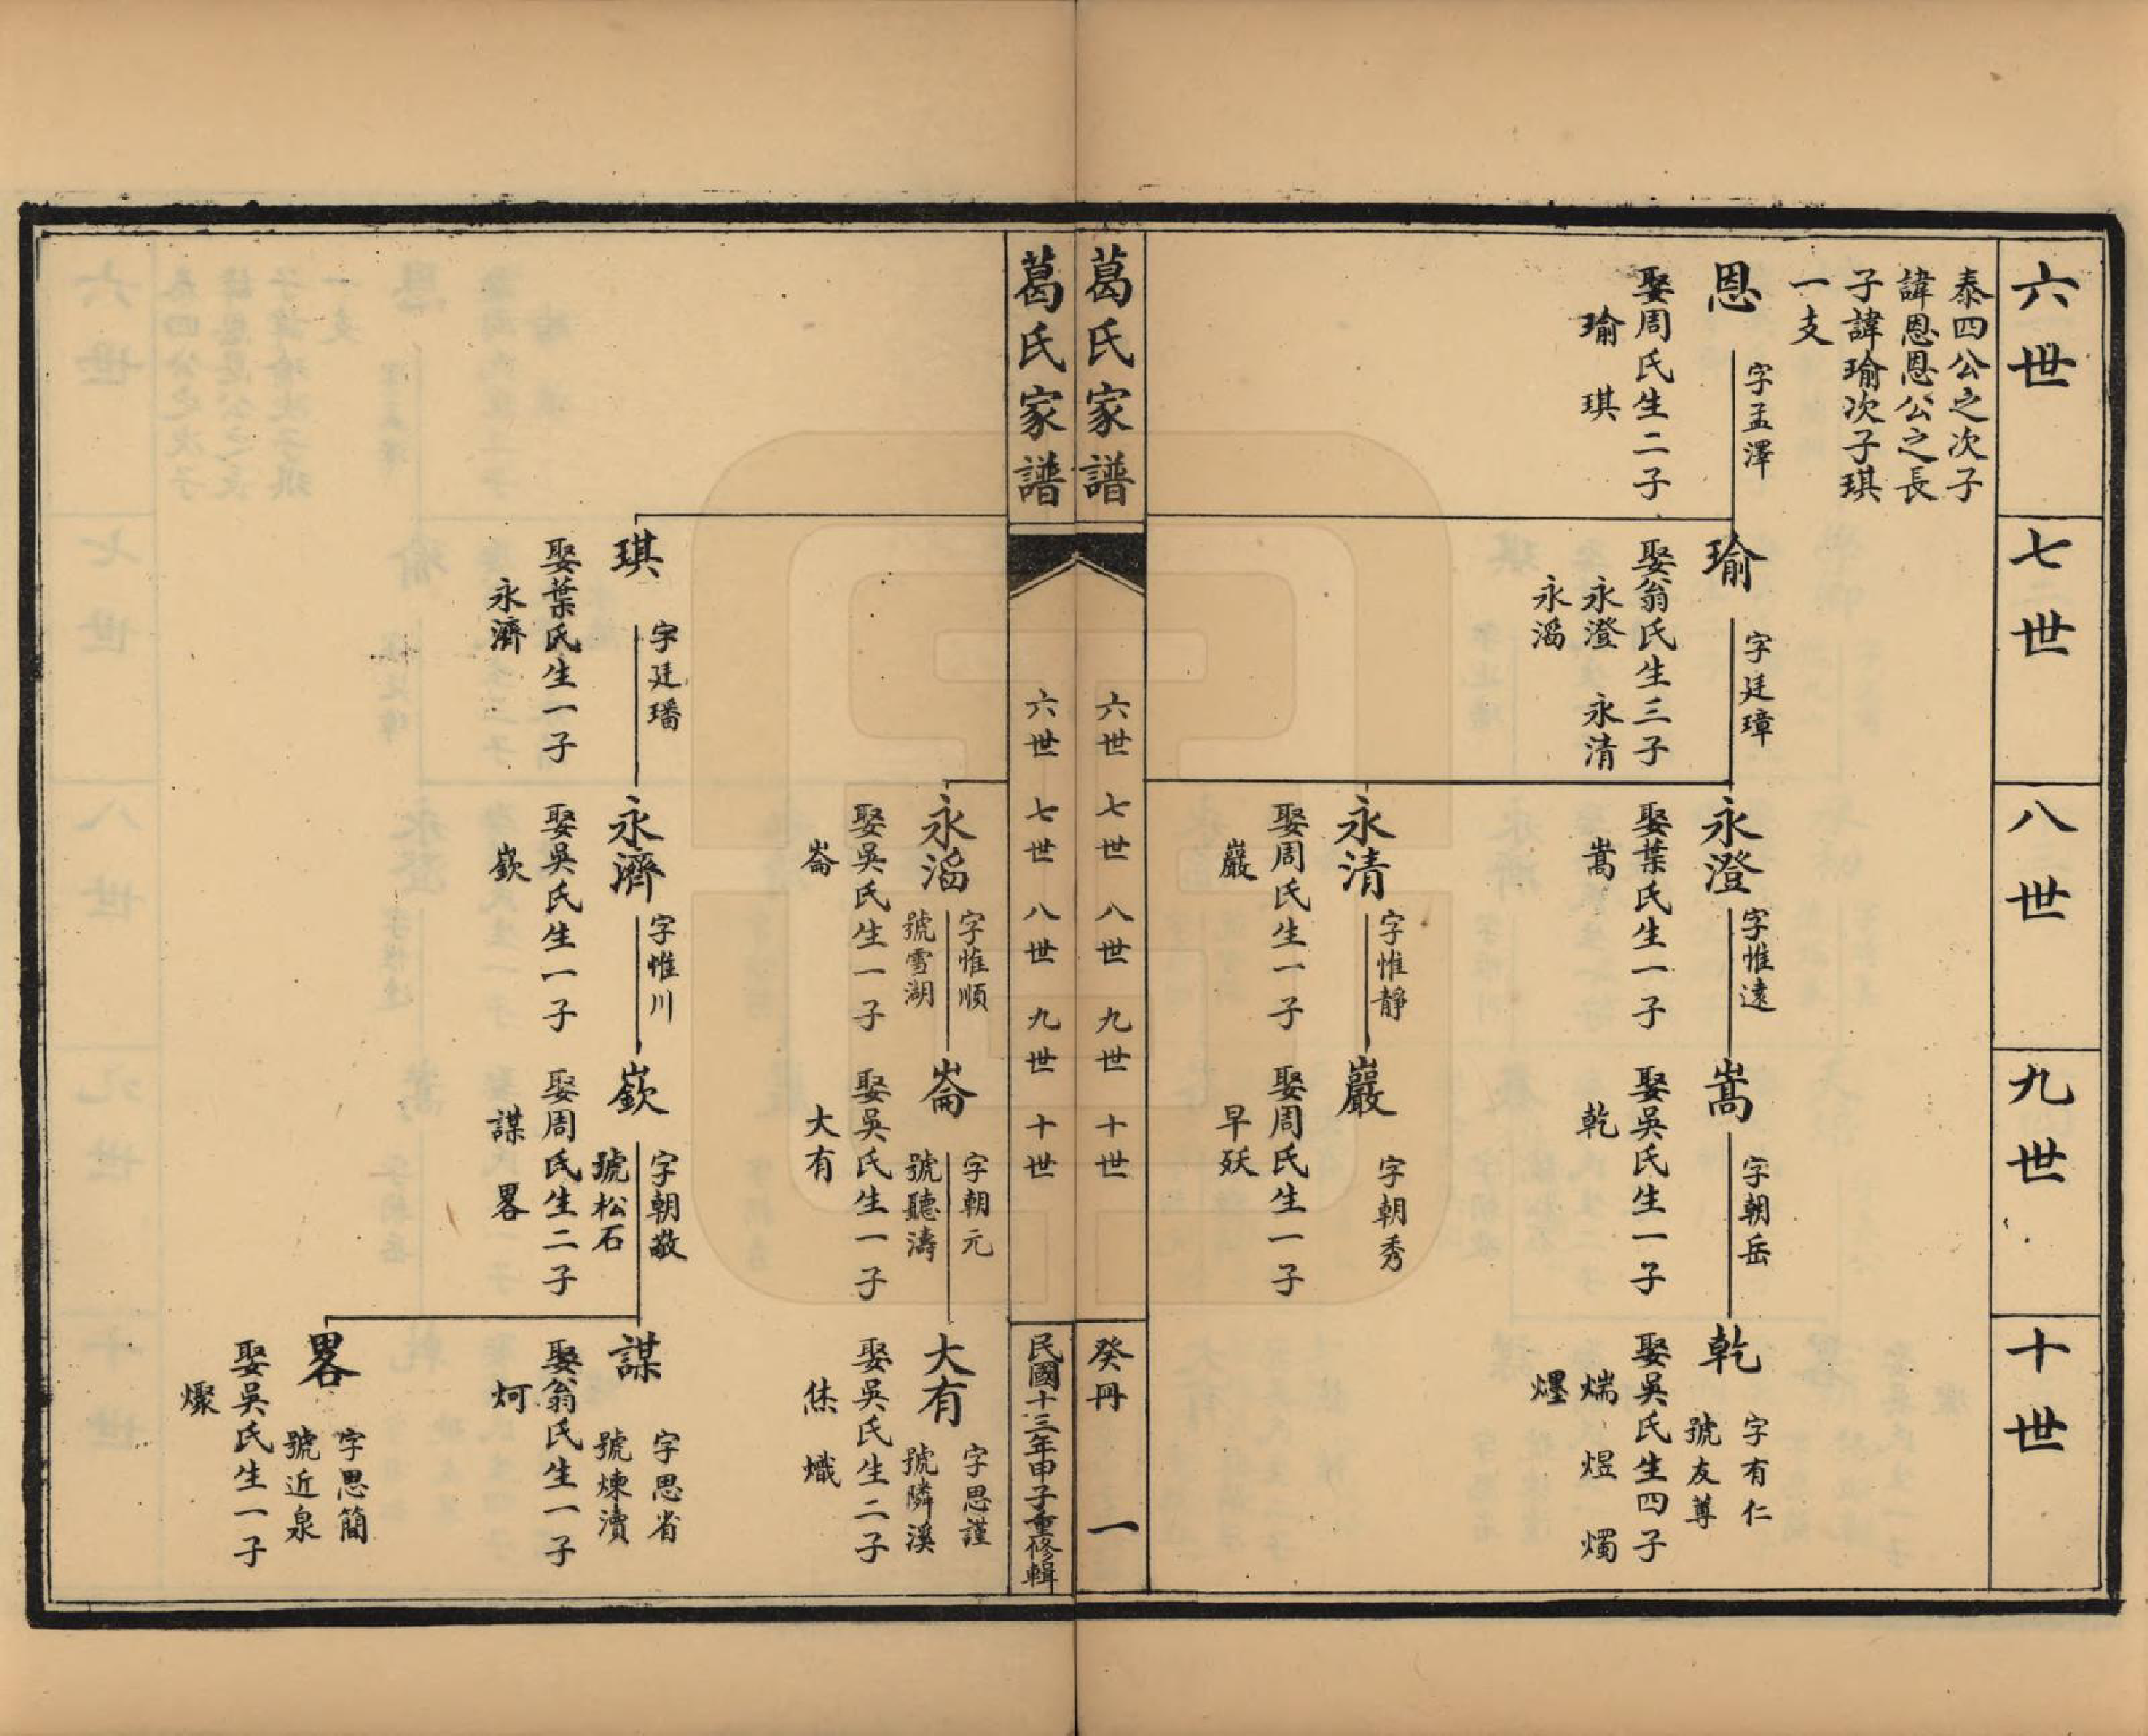 六世
七世
八世
九世
十世
泰四公之次子
諱恩恩公之長
子諱瑜次子琪
一支
恩
字孟澤
娶周氏生二子
瑜 琪
瑜
字廷璋
娶翁氏生三子
永澄 永清
永滔
永澄
字惟遠
娶葉氏生一子
嵩
嵩
字朝岳
娶吳氏生一子
乾
乾
字有仁
號友尊
娶吳氏生四子
煓 煜 燭
爅
永清
字惟靜
娶周氏生一子
巖
巖
字朝秀
娶周氏生一子
早殀
葛氏家譜
六世 七世 八世 九世 十世
癸冊 一
葛氏家譜
六世 七世 八世 九世 十世
民國十三年甲子重修輯
永滔
字惟順
號雪湖
娶吳氏生一子
崙
崙
字朝元
號聽濤
娶吳氏生一子
大有
大有
字思謹
號隣溪
娶吳氏生二子
烋 熾
琪
字廷璠
娶葉氏生一子
永濟
永濟
字惟川
娶吳氏生一子
嶔
嶔
字朝敬
號松石
娶周氏生二子
謀 畧
謀
字思省
號煉瀆
娶翁氏生一子
炣
畧
字思簡
號近泉
娶吳氏生一子
爍